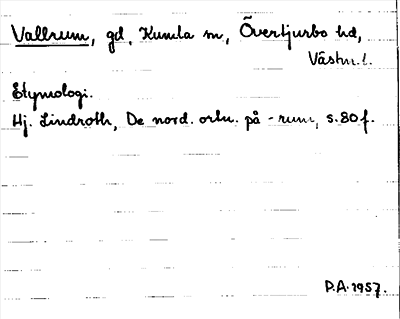 Vallrum, gd, Kumla sn, Övertjurbo hd,
Västm. l.
Etymologi.
Hj. Lindroth, De nord. ortn. på -rum, s. 80 f.
P.A. 1957.